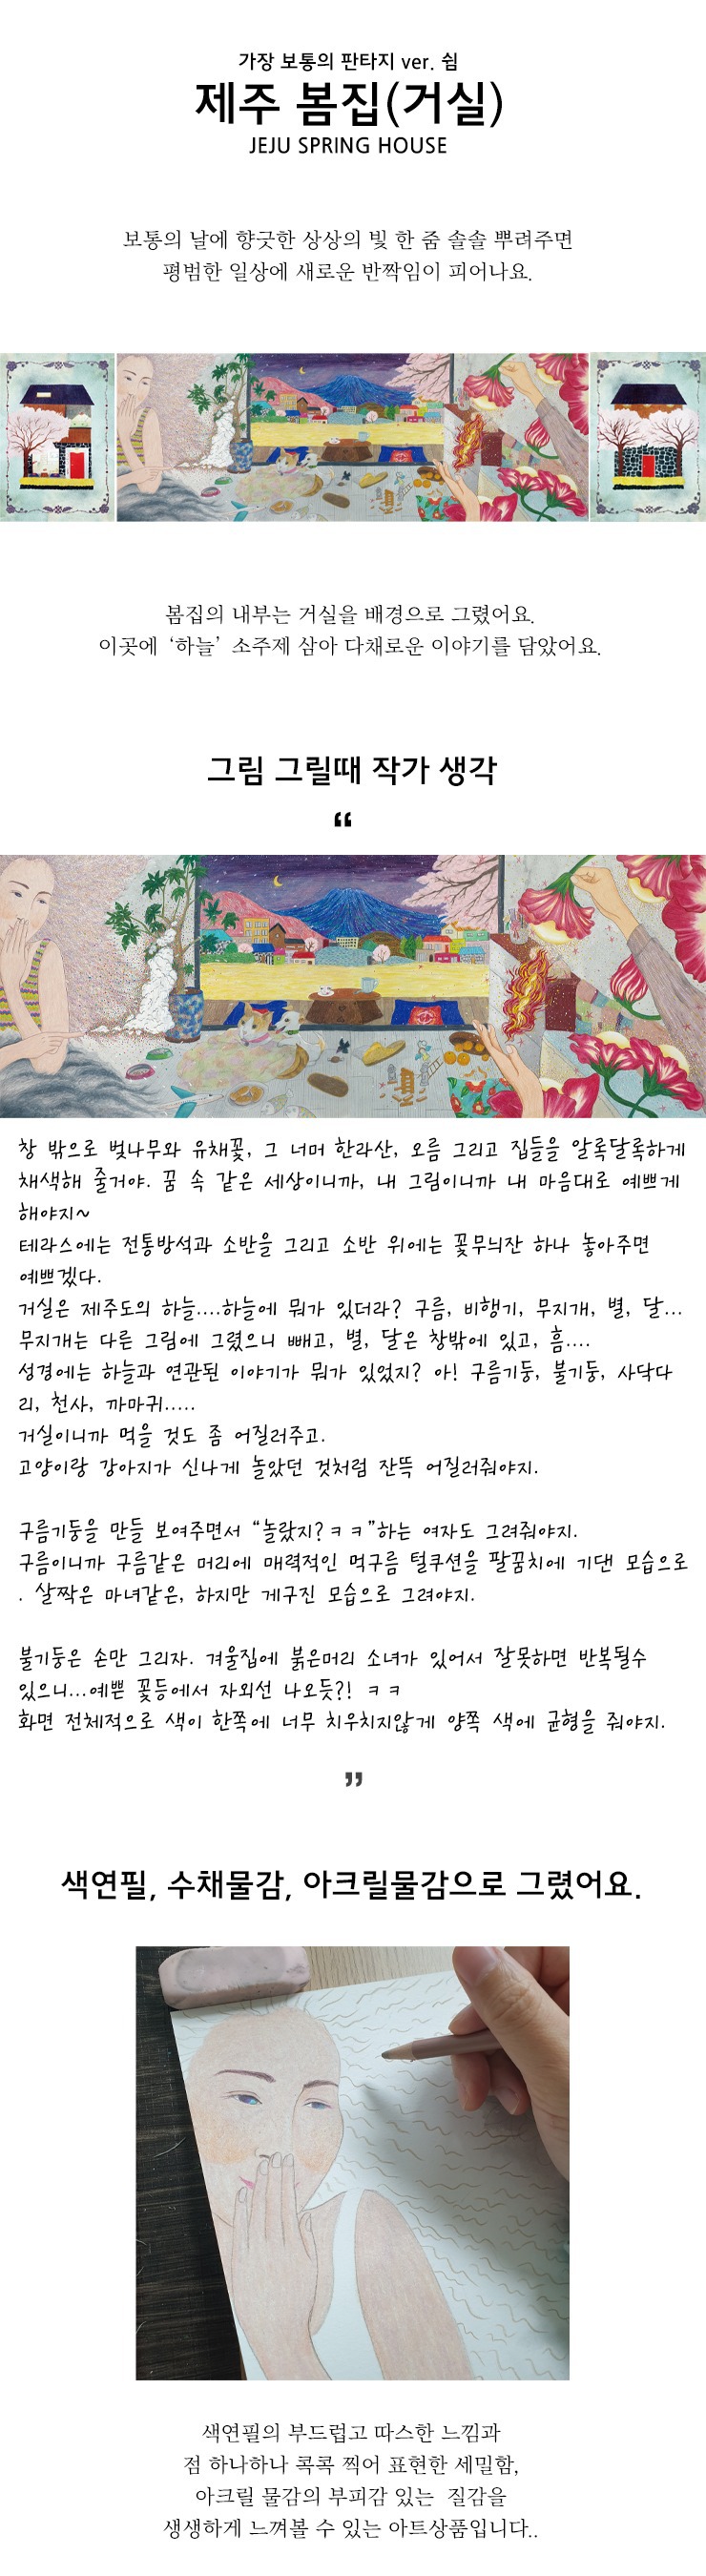 가장 보통의 판타지 ver. 쉼
제주 봄집(거실)
JEJU SPRING HOUSE
보통의 날에 향긋한 상상의 빛 한 줌 솔솔 뿌려주면
평범한 일상에 새로운 반짝임이 피어나요.
봄집의 내부는 거실을 배경으로 그렸어요.
이곳에 ‘하늘’ 소주제 삼아 다채로운 이야기를 담았어요.
그림 그릴때 작가 생각
“
창 밖으로 벚나무와 유채꽃, 그 너머 한라산, 오름 그리고 집들을 알록달록하게
채색해 줄거야. 꿈 속 같은 세상이니까, 내 그림이니까 내 마음대로 예쁘게
해야지~
테라스에는 전통방석과 소반을 그리고 소반 위에는 꽃무늬잔 하나 놓아주면
예쁘겠다.
거실은 제주도의 하늘....하늘에 뭐가 있더라? 구름, 비행기, 무지개, 별, 달...
무지개는 다른 그림에 그렸으니 빼고, 별, 달은 창밖에 있고, 흠....
성경에는 하늘과 연관된 이야기가 뭐가 있었지? 아! 구름기둥, 불기둥, 사닥다
리, 천사, 까마귀.....
거실이니까 먹을 것도 좀 어질러주고.
고양이랑 강아지가 신나게 놀았던 것처럼 잔뜩 어질러줘야지.
구름기둥을 만들 보여주면서 “놀랐지?ㅋㅋ”하는 여자도 그려줘야지.
구름이니까 구름같은 머리에 매력적인 먹구름 털쿠션을 팔꿈치에 기댄 모습으로
. 살짝은 마녀같은, 하지만 게구진 모습으로 그려야지.
불기둥은 손만 그리자. 겨울집에 붉은머리 소녀가 있어서 잘못하면 반복될수
있으니...예쁜 꽃등에서 자외선 나오듯?! ㅋㅋ
화면 전체적으로 색이 한쪽에 너무 치우치지않게 양쪽 색에 균형을 줘야지.
”
색연필, 수채물감, 아크릴물감으로 그렸어요.
색연필의 부드럽고 따스한 느낌과
점 하나하나 콕콕 찍어 표현한 세밀함,
아크릴 물감의 부피감 있는 질감을
생생하게 느껴볼 수 있는 아트상품입니다..